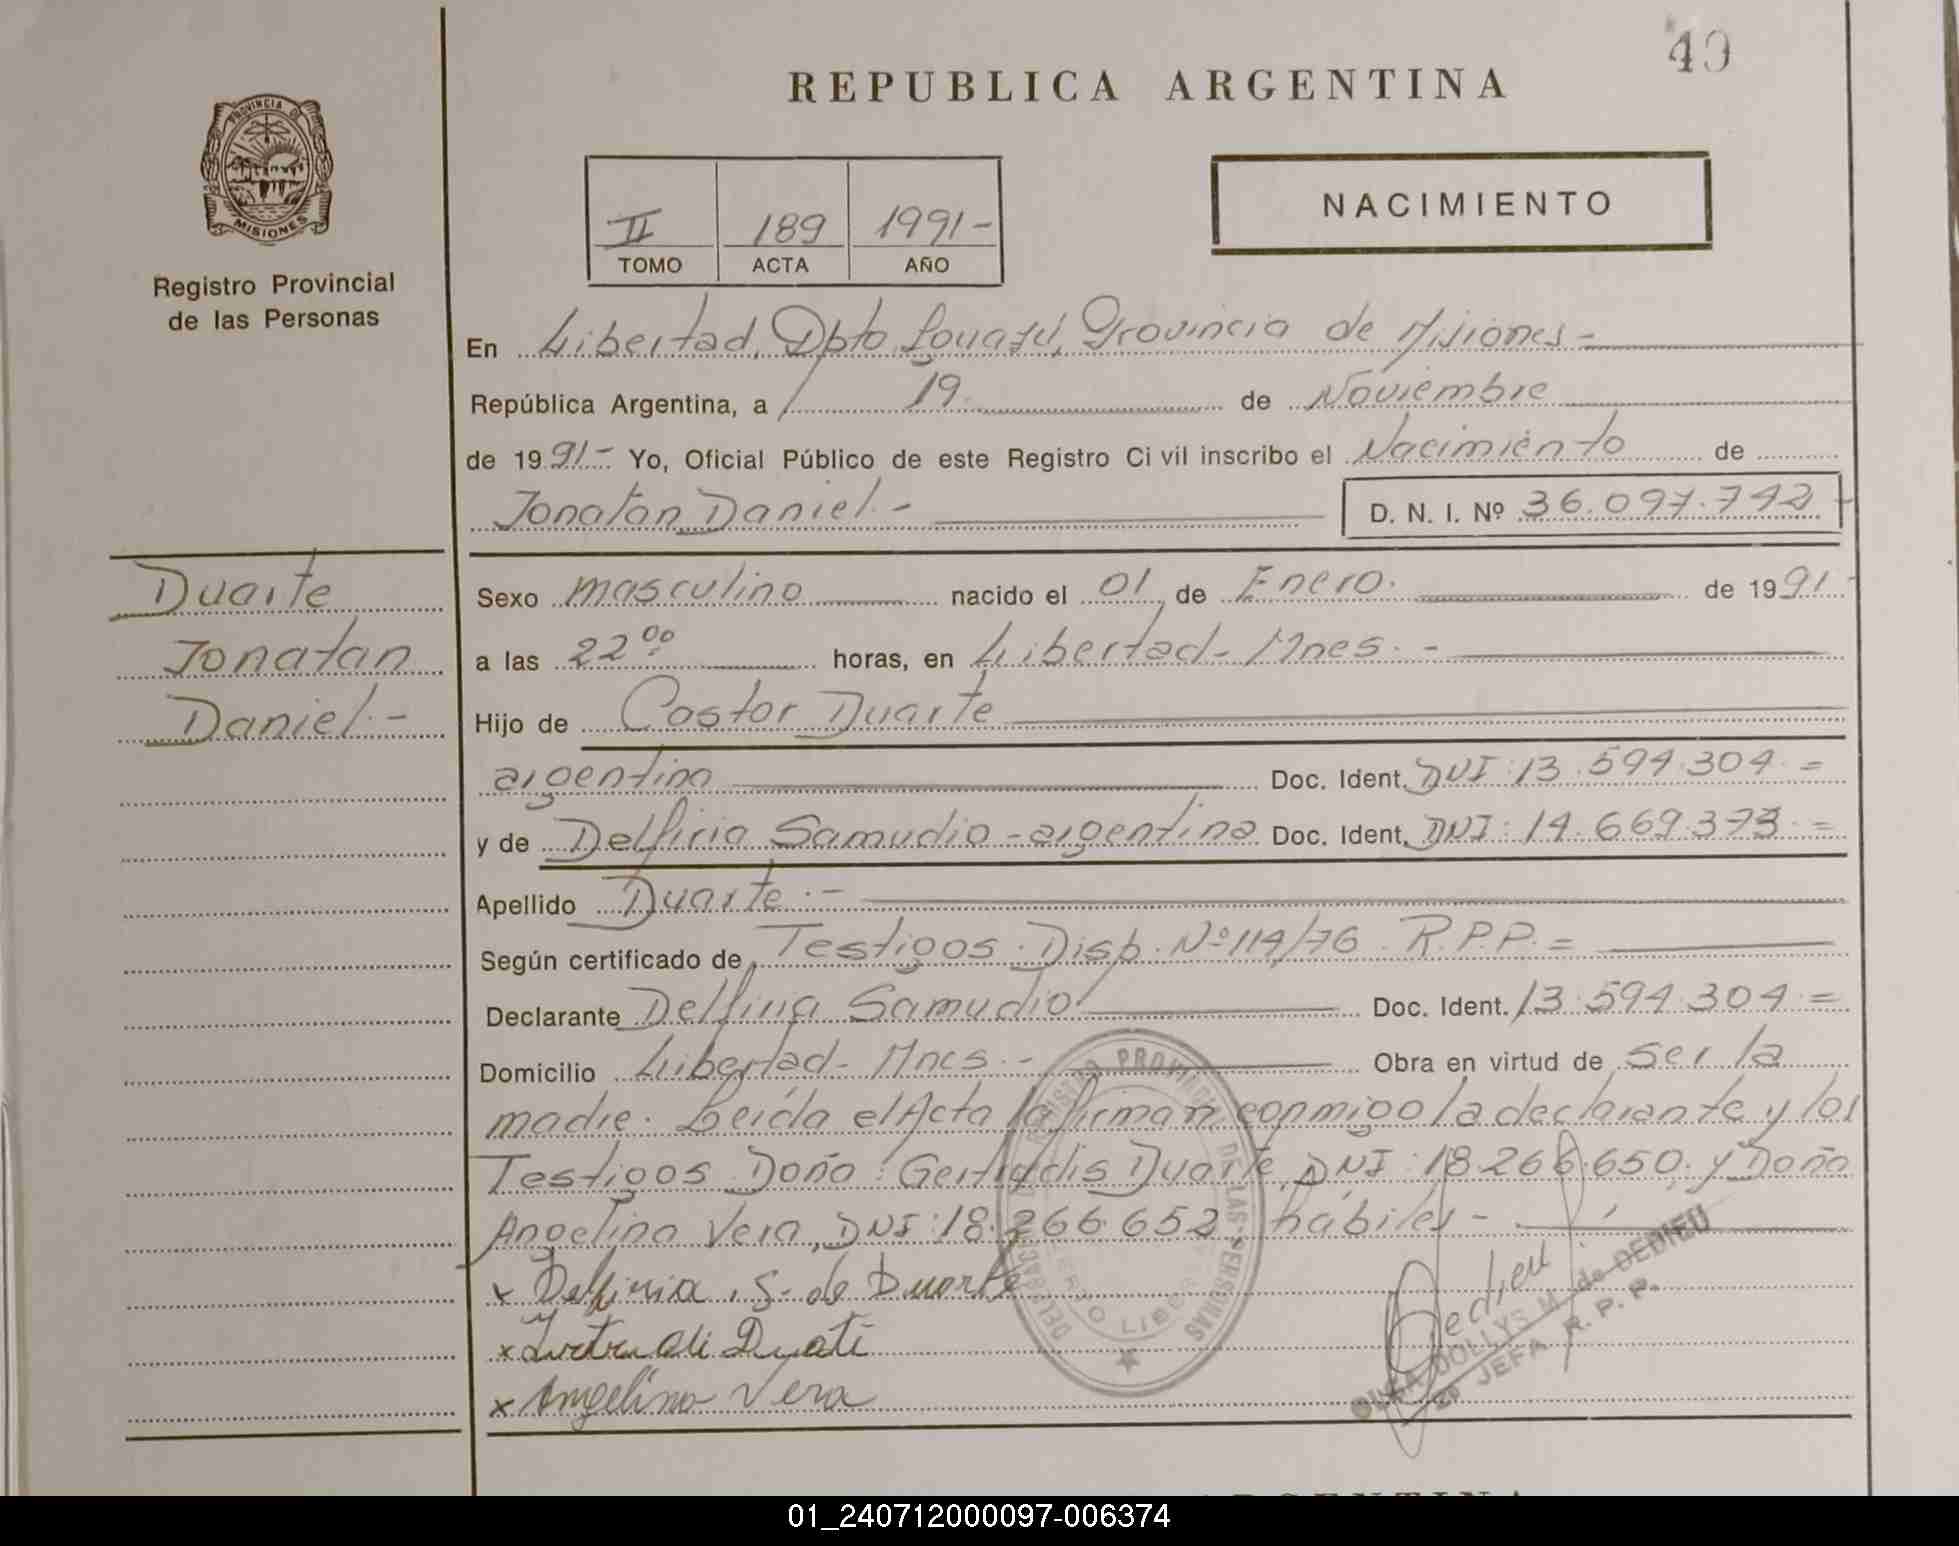 40
REPUBLICA ARGENTINA
PROVINCIA DE
MISIONES
Registro Provincial
de las Personas
II 189 1991-
TOMO ACTA AÑO
NACIMIENTO
En Libertad, Dpto Iguazú, Provincia de Misiones -
República Argentina, a 19 de Noviembre
de 1991- Yo, Oficial Público de este Registro Civil inscribo el Nacimiento de
Jonatan Daniel.- D. N. I. Nº 36.097.742-
Duarte
Jonatan
Daniel.-
Sexo masculino nacido el 01 de Enero. de 1991-
a las 22ºº horas, en Libertad- Mnes. -
Hijo de Castor Duarte
argentino Doc. Ident. DNI: 13.594.304. =
y de Delfiria Samudio - argentina Doc. Ident. DNI: 14.669.373. =
Apellido Duarte. -
Según certificado de Testigos. Disp. Nº 114/76. R.P.P. =
Declarante Delfiria Samudio Doc. Ident. 13.594.304. =
Domicilio Libertad- Mnes. - Obra en virtud de ser la
madre. Leída el Acta la firman conmigo la declarante y los
Testigos Doña: Gertrudis Duarte, DNI: 18.266.650. y Doña
Angelina Vera, DNI: 18.266.652, hábiles -
x Delfiria. S. de Duarte
x Duati
x Angelina Vera
Dedieu
OLGA DOLLYS M. de DEDIEU
JEFA R. P. P.
REGISTRO PROVINCIAL DE LAS PERSONAS
01_240712000097-006374